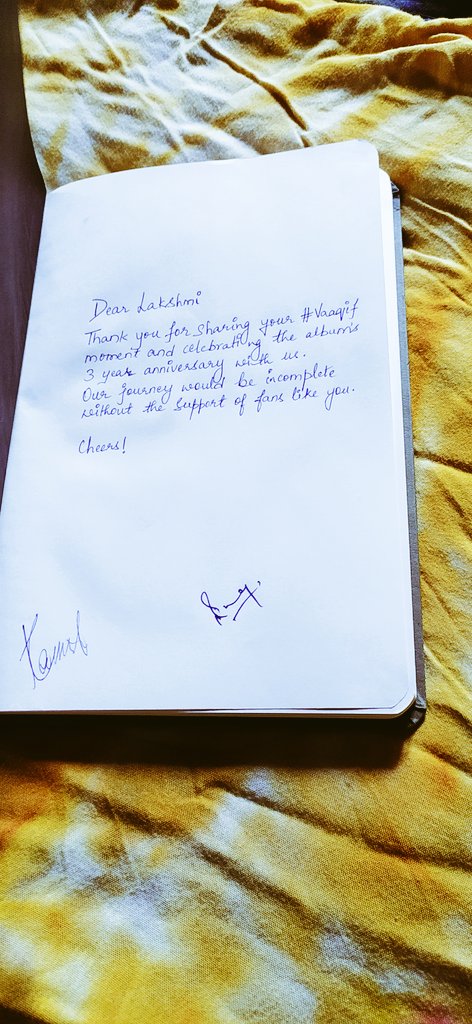 Dear Lakshmi
Thank you for sharing your #Vaaqif
moment and celebrating the album's
3 year anniversary with us.
Our journey would be incomplete
without the support of fans like you.
Cheers!